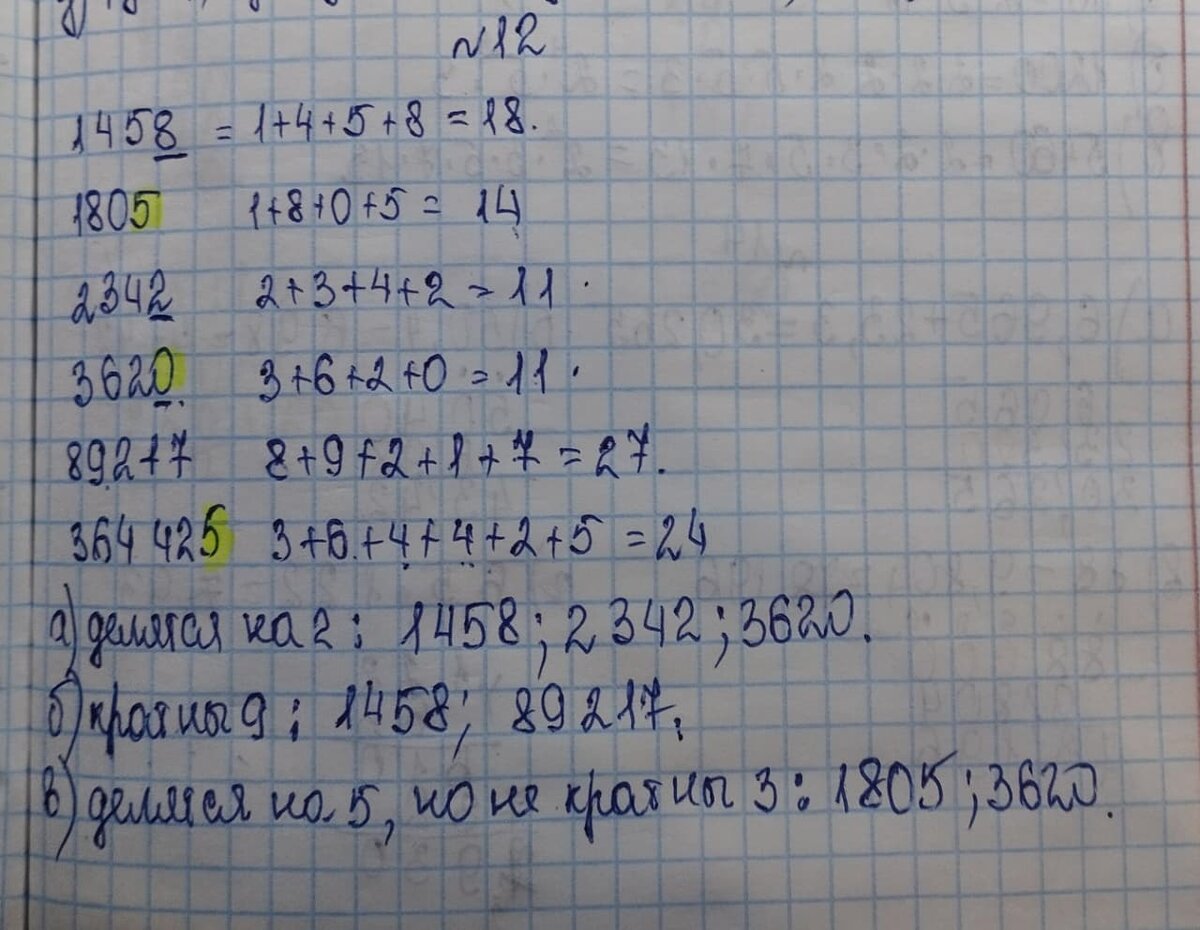 №12
1458 = 1+4+5+8 = 18.
1805 1+8+0+5 = 14
2342 2+3+4+2 = 11.
3620. 3+6+2+0 = 11.
89217 8+9+2+1+7 = 27.
364 425 3+6+4+4+2+5 = 24
а) делятся на 2: 1458; 2342; 3620.
б) кратны 9: 1458; 89217;
в) делятся на 5, но не кратны 3: 1805; 3620.